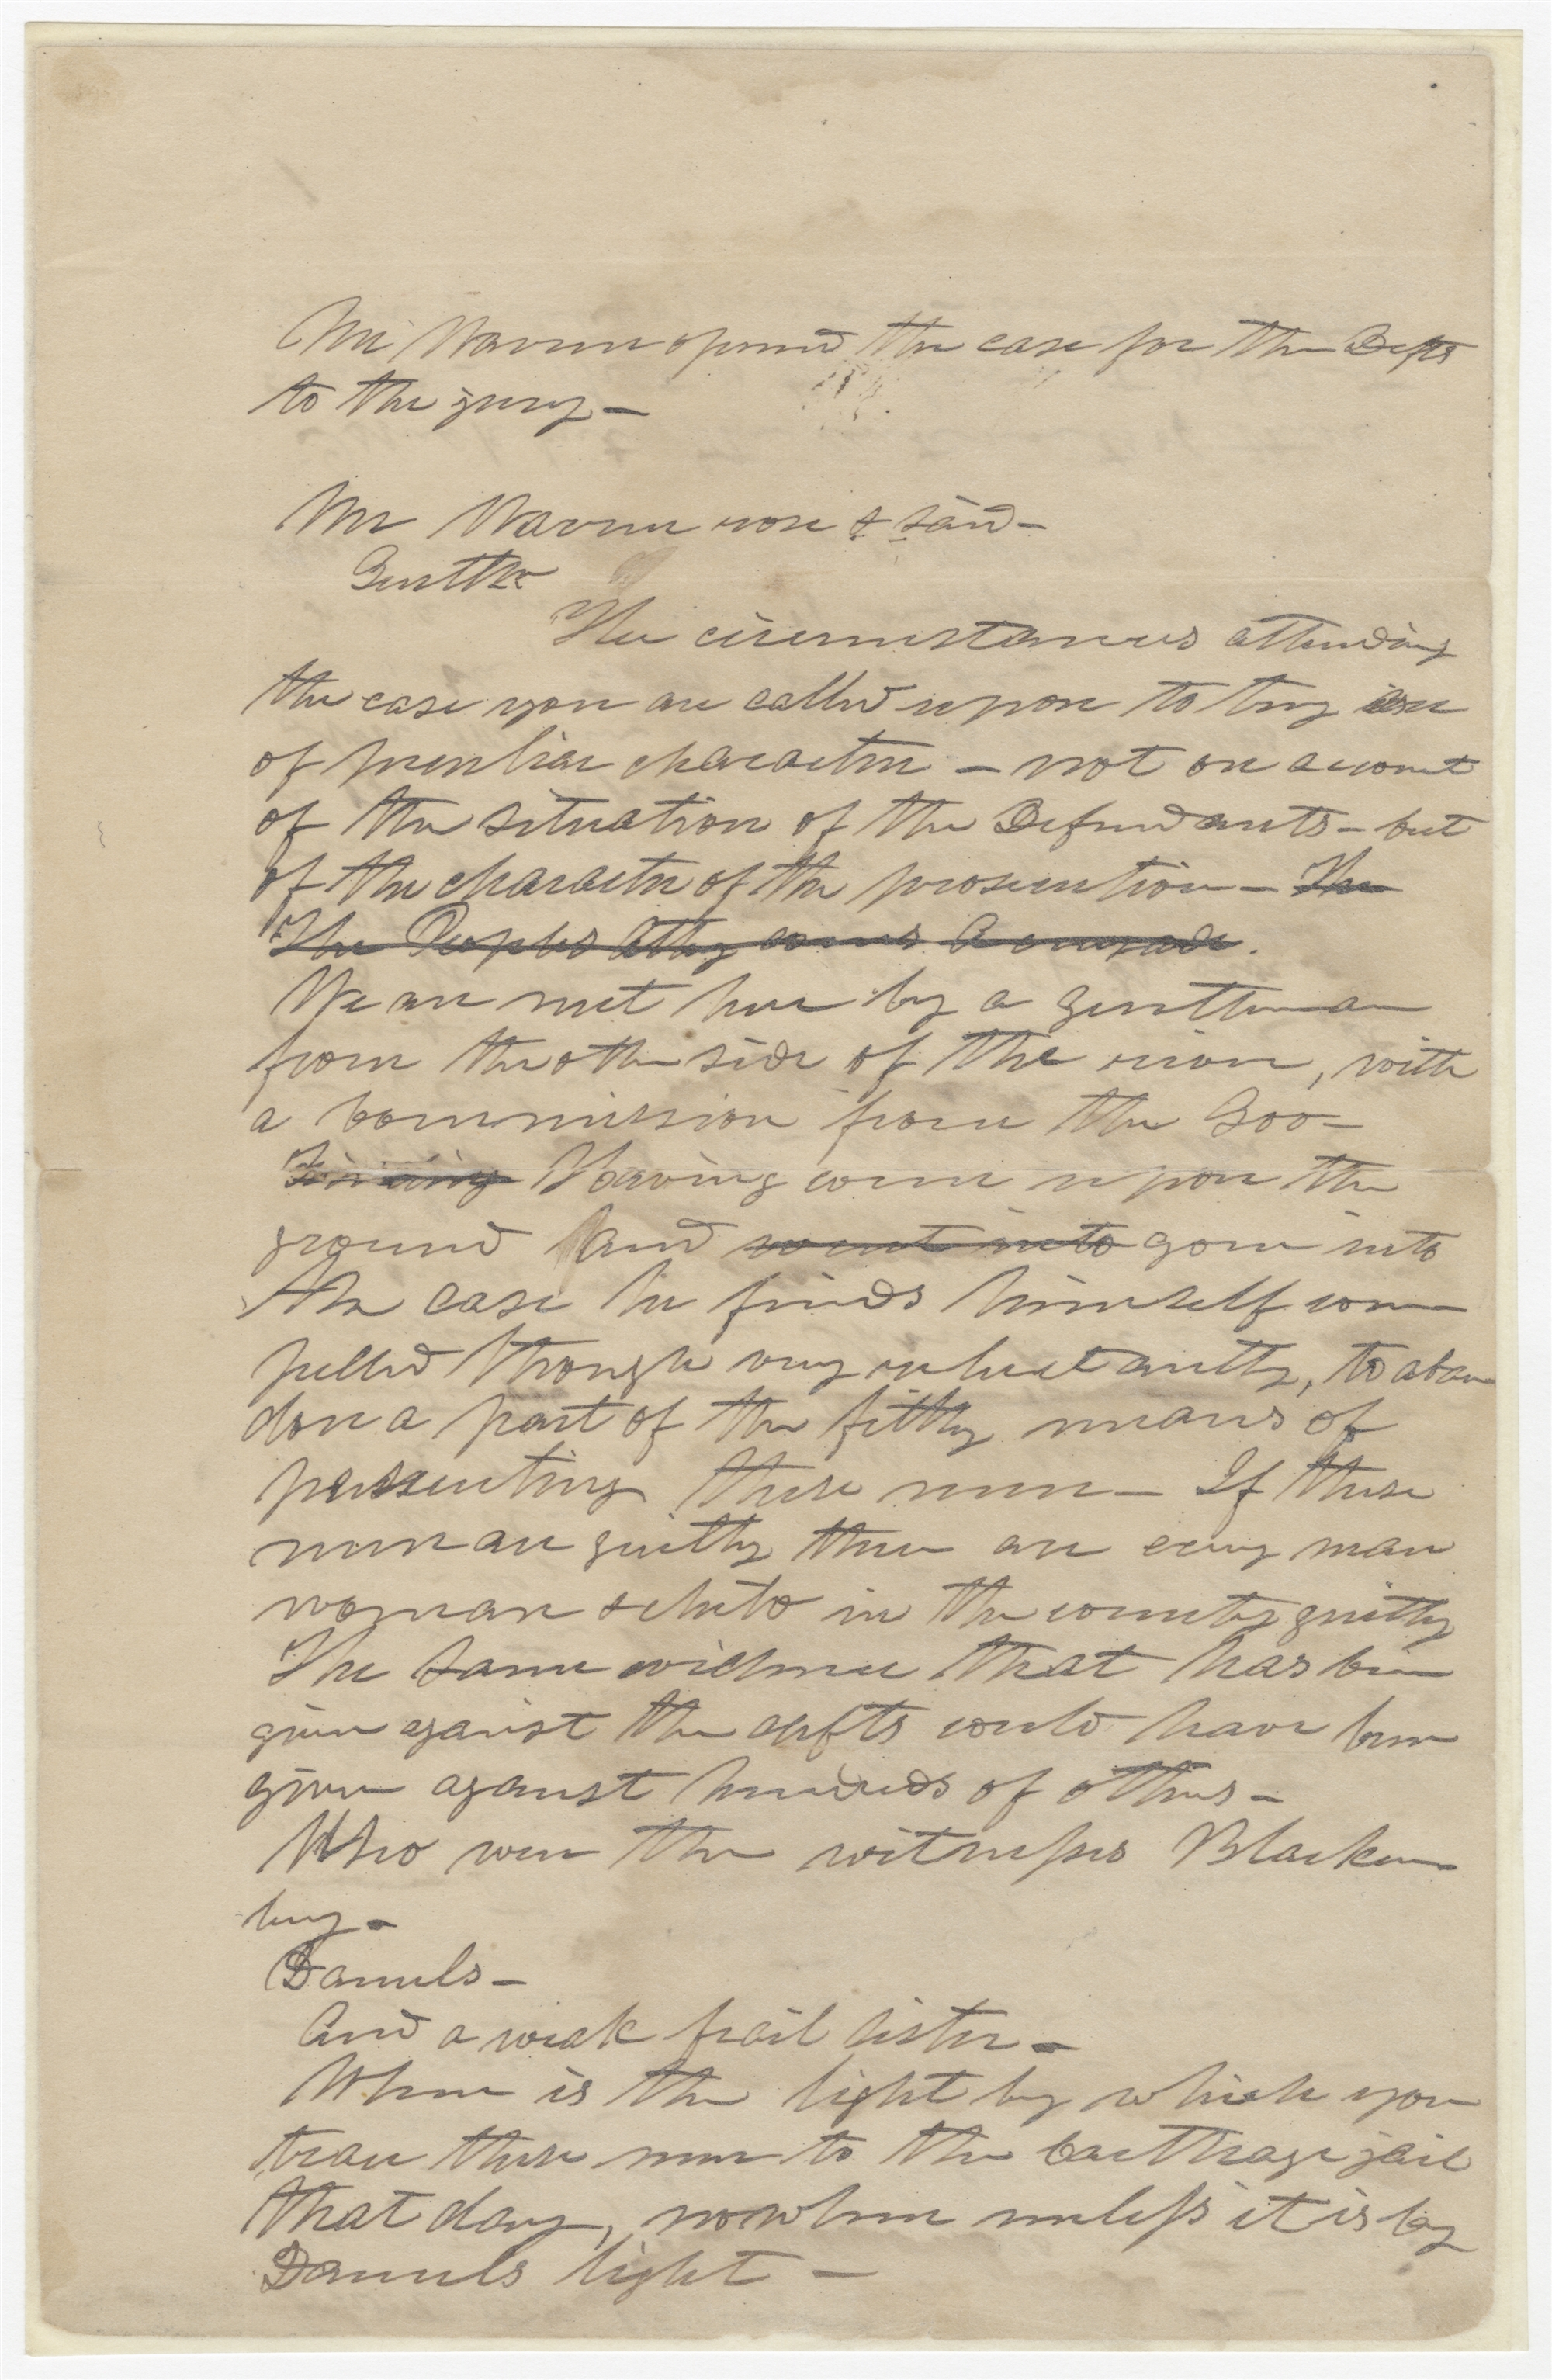 Mr Warren opened the case for the Defts
to the jury —
Mr Warren rose & said —
Gentln
The circumstances attending
the case you are called upon to try are
of peculiar character — not on account
of the situation of the Defendants — but
of the character of the prosecution — The
The Peoples Atty comes a crusade.
We are met here by a gentleman
from the other side of the river, with
a Commission from the Gov —
Having come upon the
ground and went into gone into
the case he finds himself com
pelled though very reluctantly, to aban
don a part of the filthy means of
persecuting these men — If these
men are guilty then are every man
woman & child in the county guilty
The same evidence that has been
given against the defts could have been
given against hundreds of others —
Who were the witnesses Bracken
bury —
Daniels —
And a weak frail sister —
Where is the light by which you
trace these men to the Carthage jail
that day, nowhere unless it is by
Daniels light —